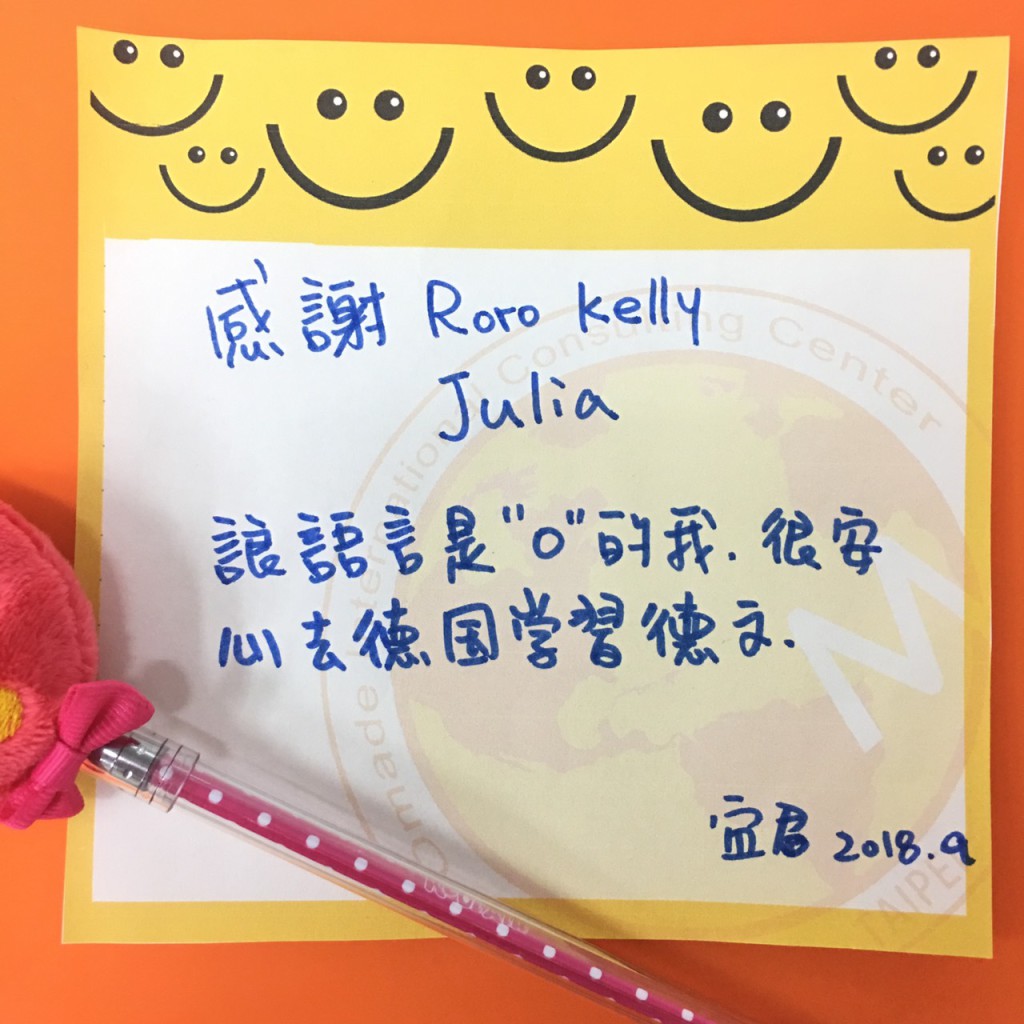 感謝 Roro Kelly
Julia
誏語言是"0"的我. 很安
心去德国学習德文.
宜君 2018.9
Omade International Consulting Center